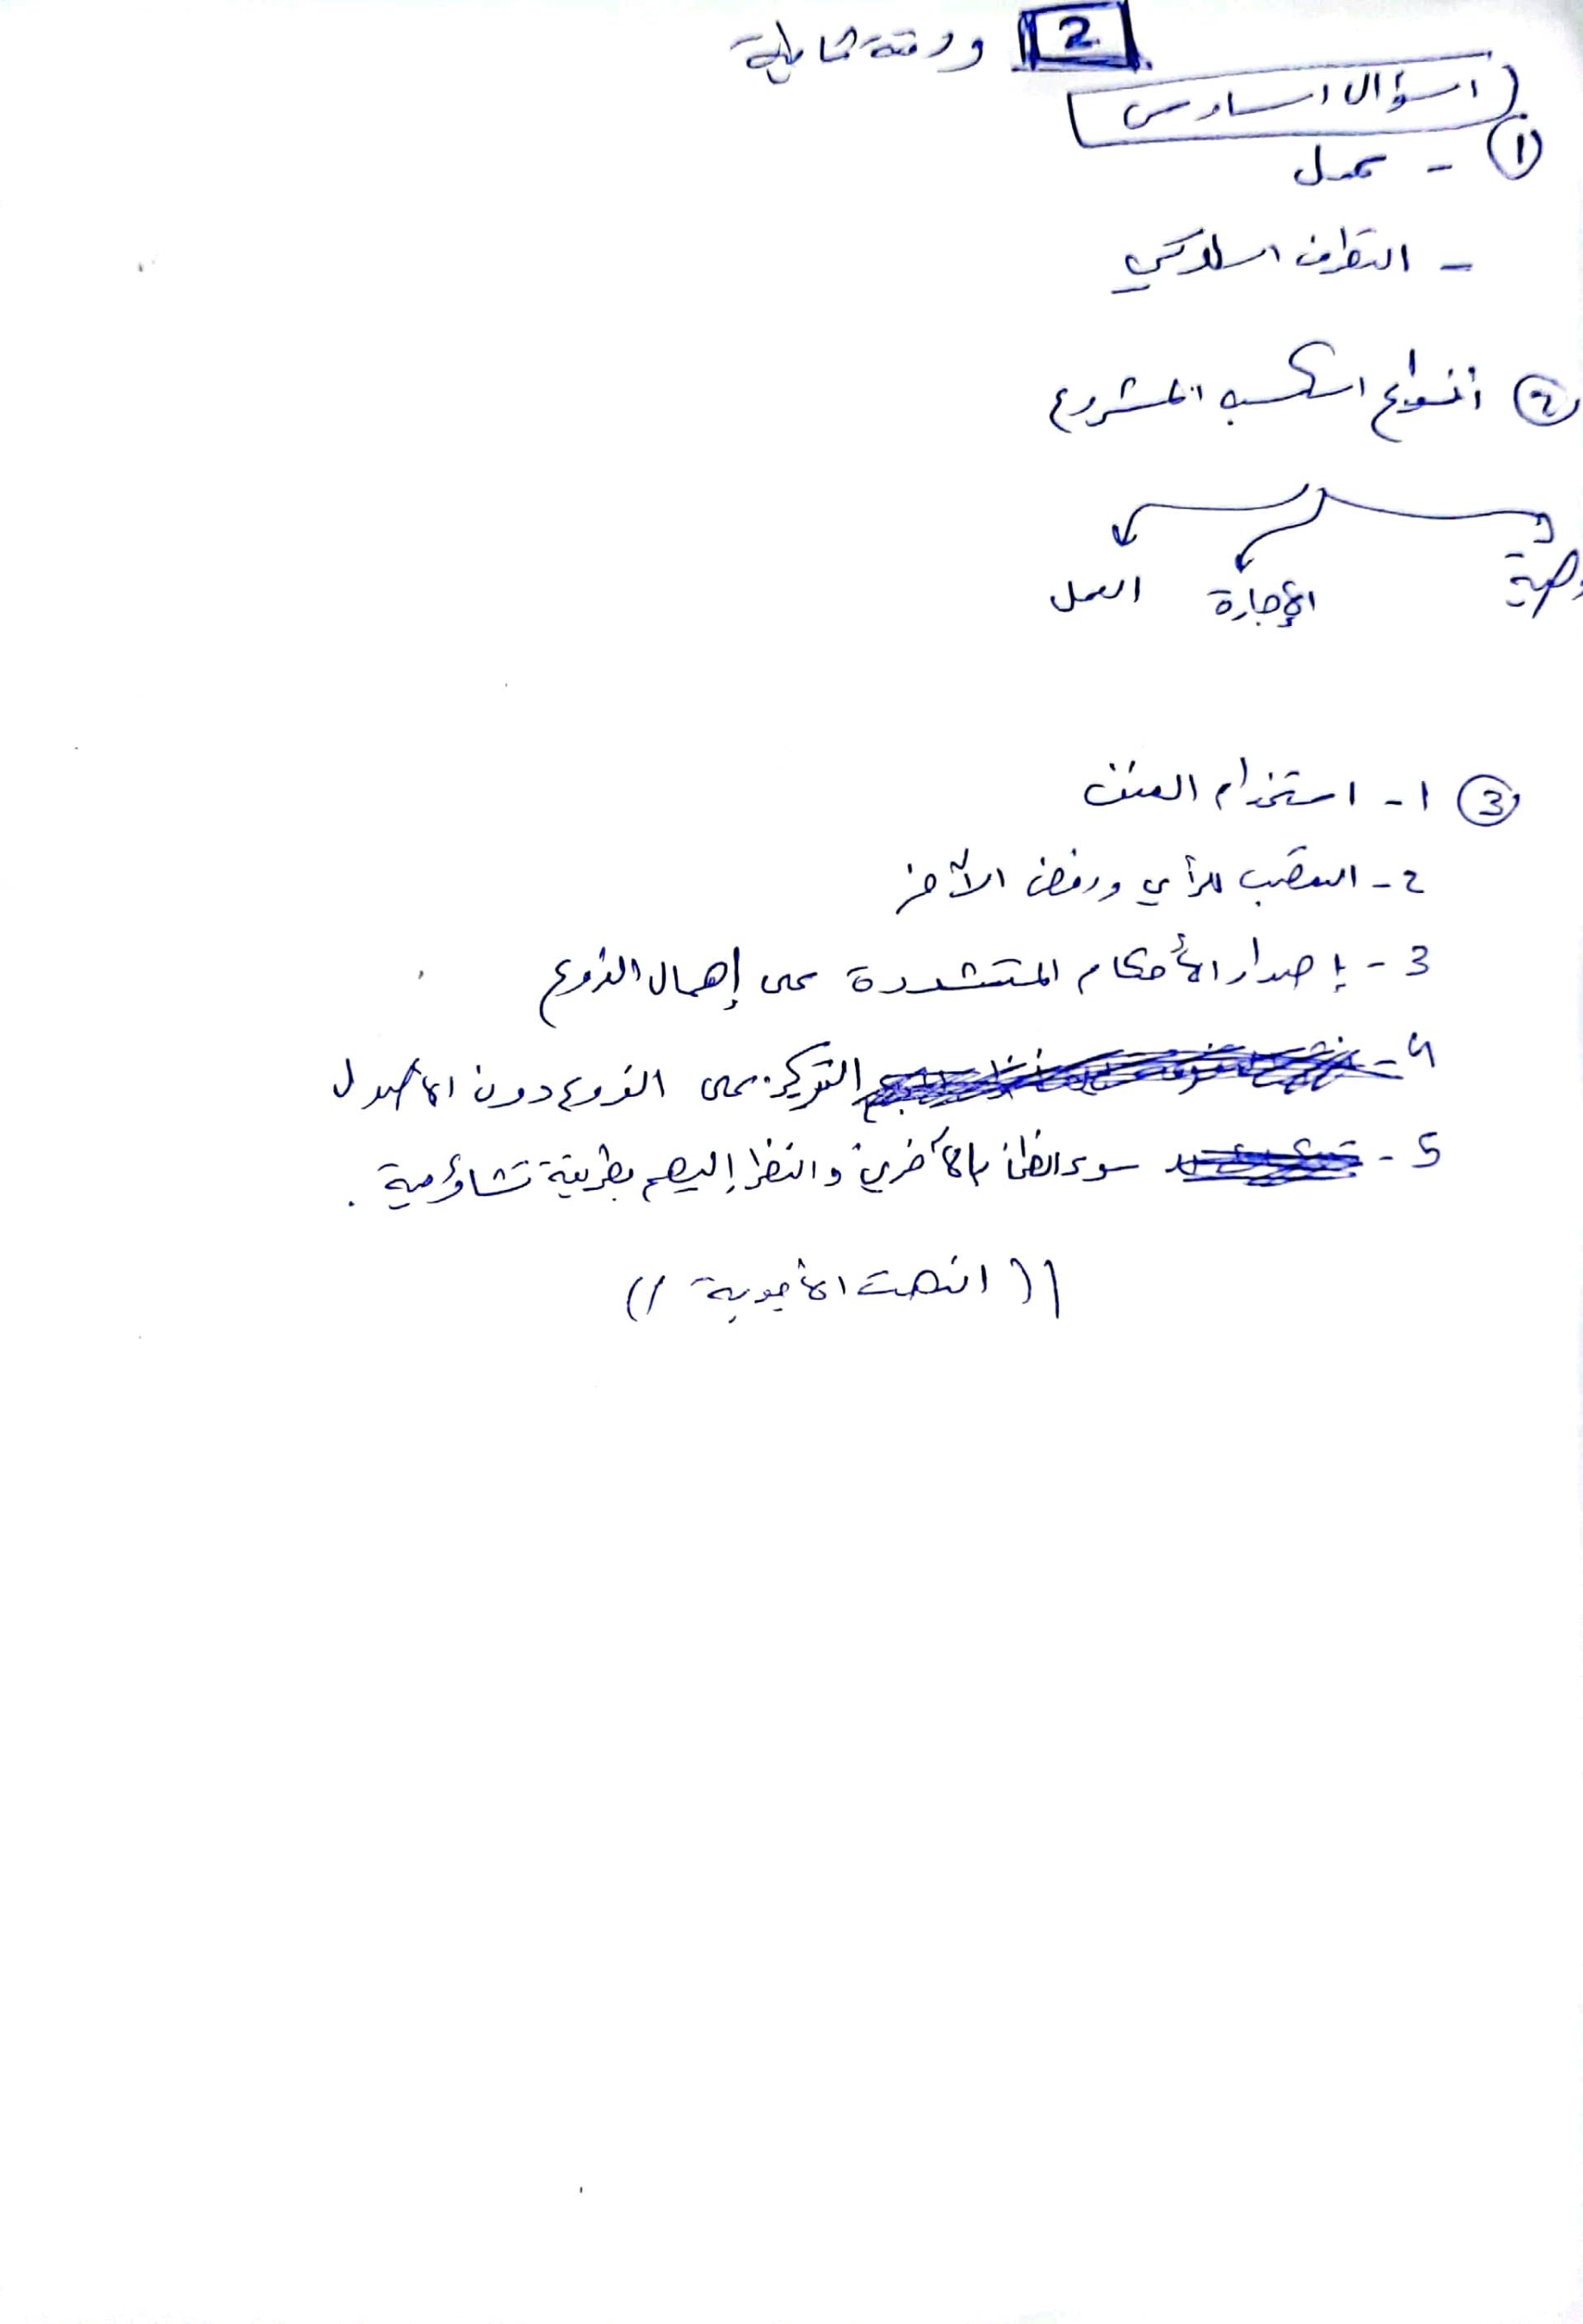 2 ورقة ثانية
السؤال السادس
① - عمل
- التطرف السلوكي
② أنواع الكسب المشروع
وصية الإجارة العمل
③ ١- استخدام العنف
٢- التعصب للرأي ورفض الآخر
3- إصدار الأحكام المتشددة على إهمال الفروع
4- التركيز على الفروع دون الأصول
5- سوء الظن بالآخرين والنظر إليهم بطريقة تشاؤمية.
((انتهت الأجوبة))